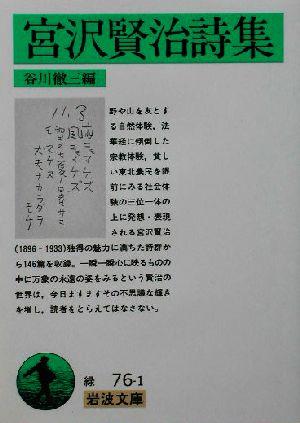 宮沢賢治詩集
谷川徹三編
野や山を友とす
る自然体験，法
華経に傾倒した
宗教体験，貧し
い東北農民を眼
前にみる社会体
験の三位一体の
上に発想・表現
される宮沢賢治
(1896－1933)独得の魅力に満ちた詩群か
ら146篇を収録．一瞬一瞬心に映るものの
中に万象の永遠の姿をみるという賢治の
世界は，今日ますますその不思議な輝きを
増し，読者をとらえてはなさない．
11.3
雨ニモマケズ
風ニモマケズ
雪ニモ夏ノ暑サニモ
マケヌ
丈夫ナカラダヲ
モチ
緑 76-1
岩波文庫